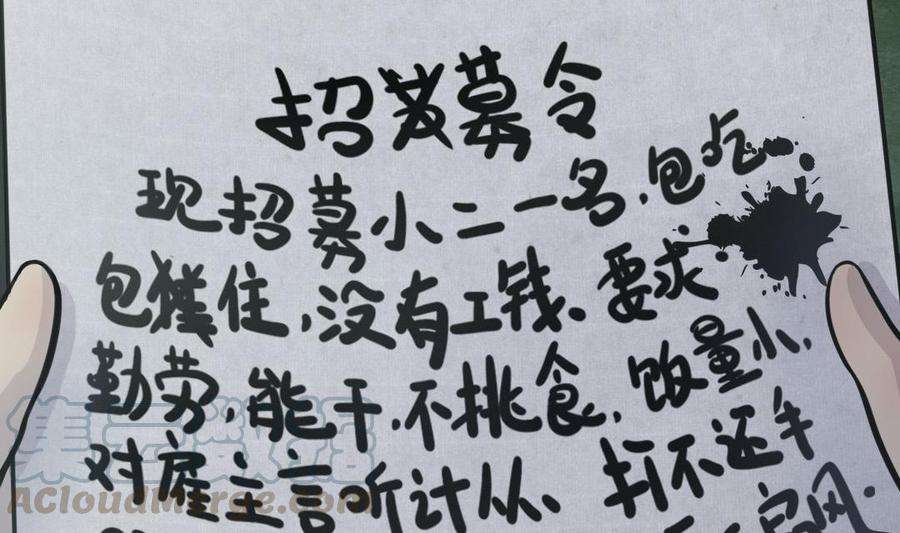 招募令
现招募小二一名,包吃
包住,没有工钱、要求
勤劳,能干,不挑食,饭量小,
对雇主言听计从、打不还手
风
集云数据
ACloudMerge.com